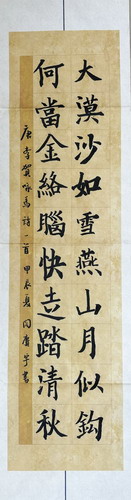 大漠沙如雪燕山月似鈎
何當金絡腦快走踏清秋
唐李賀詠馬詩一首甲辰夏